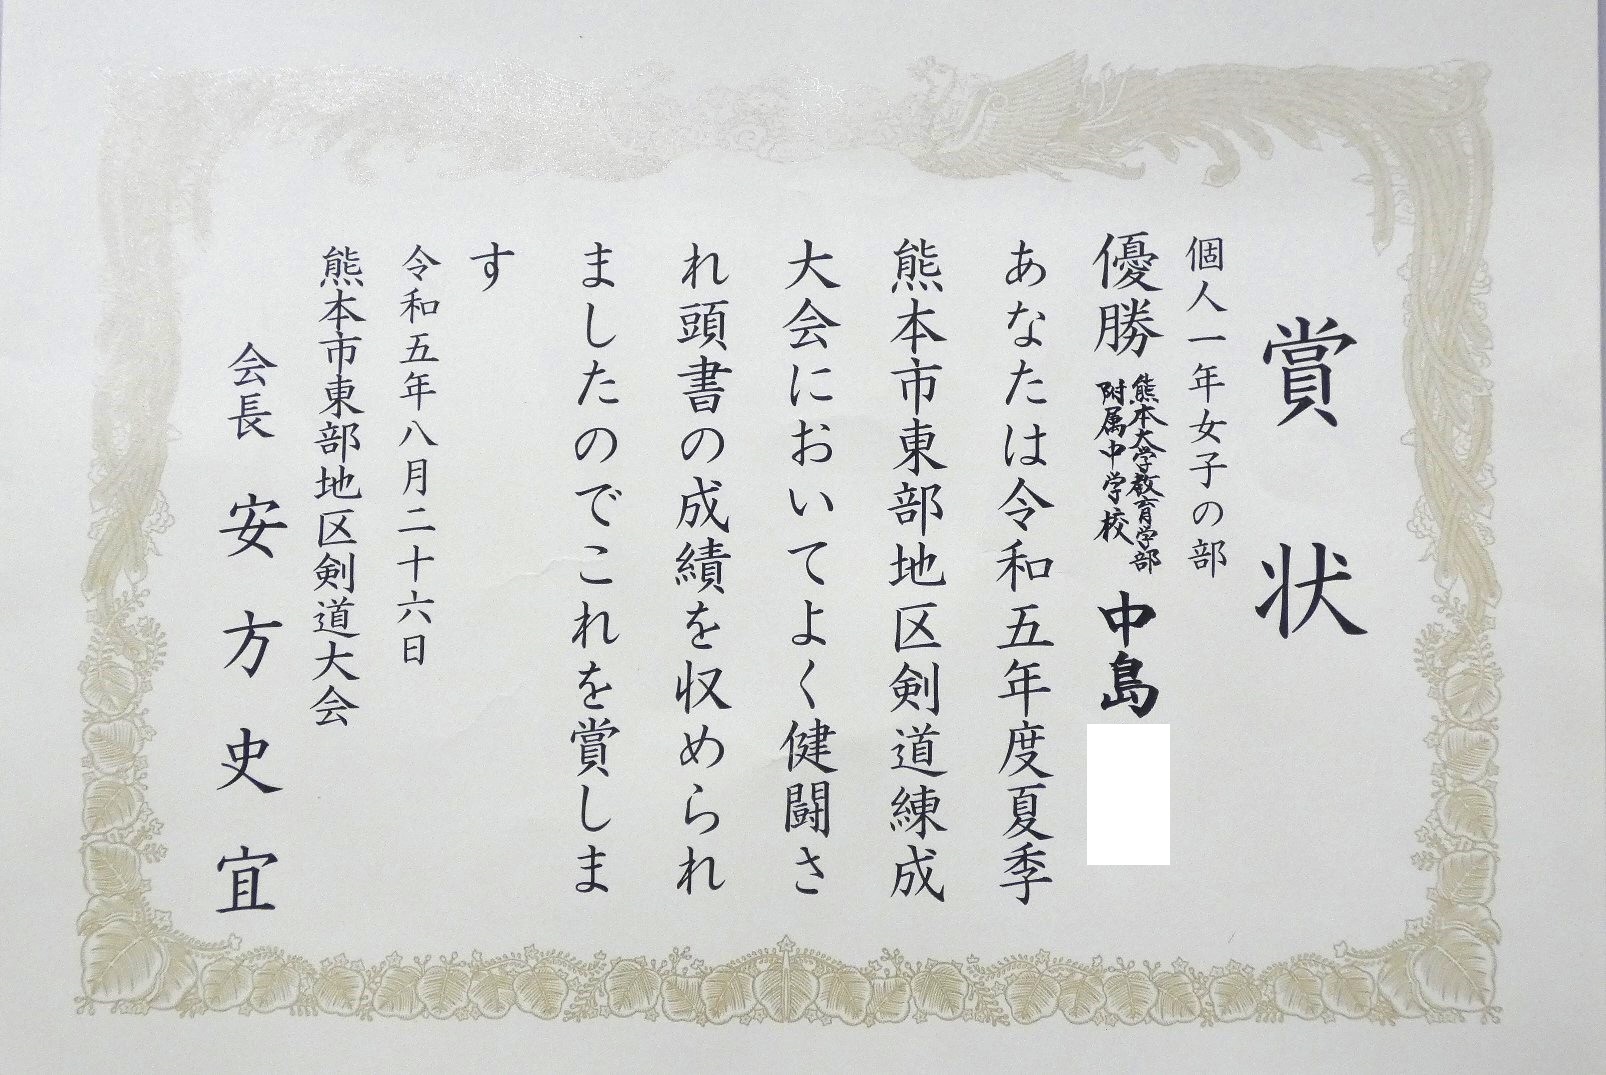 賞状
個人一年女子の部
優勝 熊本大学教育学部附属中学校 中島
あなたは令和五年度夏季
熊本市東部地区剣道練成
大会においてよく健闘さ
れ頭書の成績を収められ
ましたのでこれを賞しま
す
令和五年八月二十六日
熊本市東部地区剣道大会
会長 安方史宜